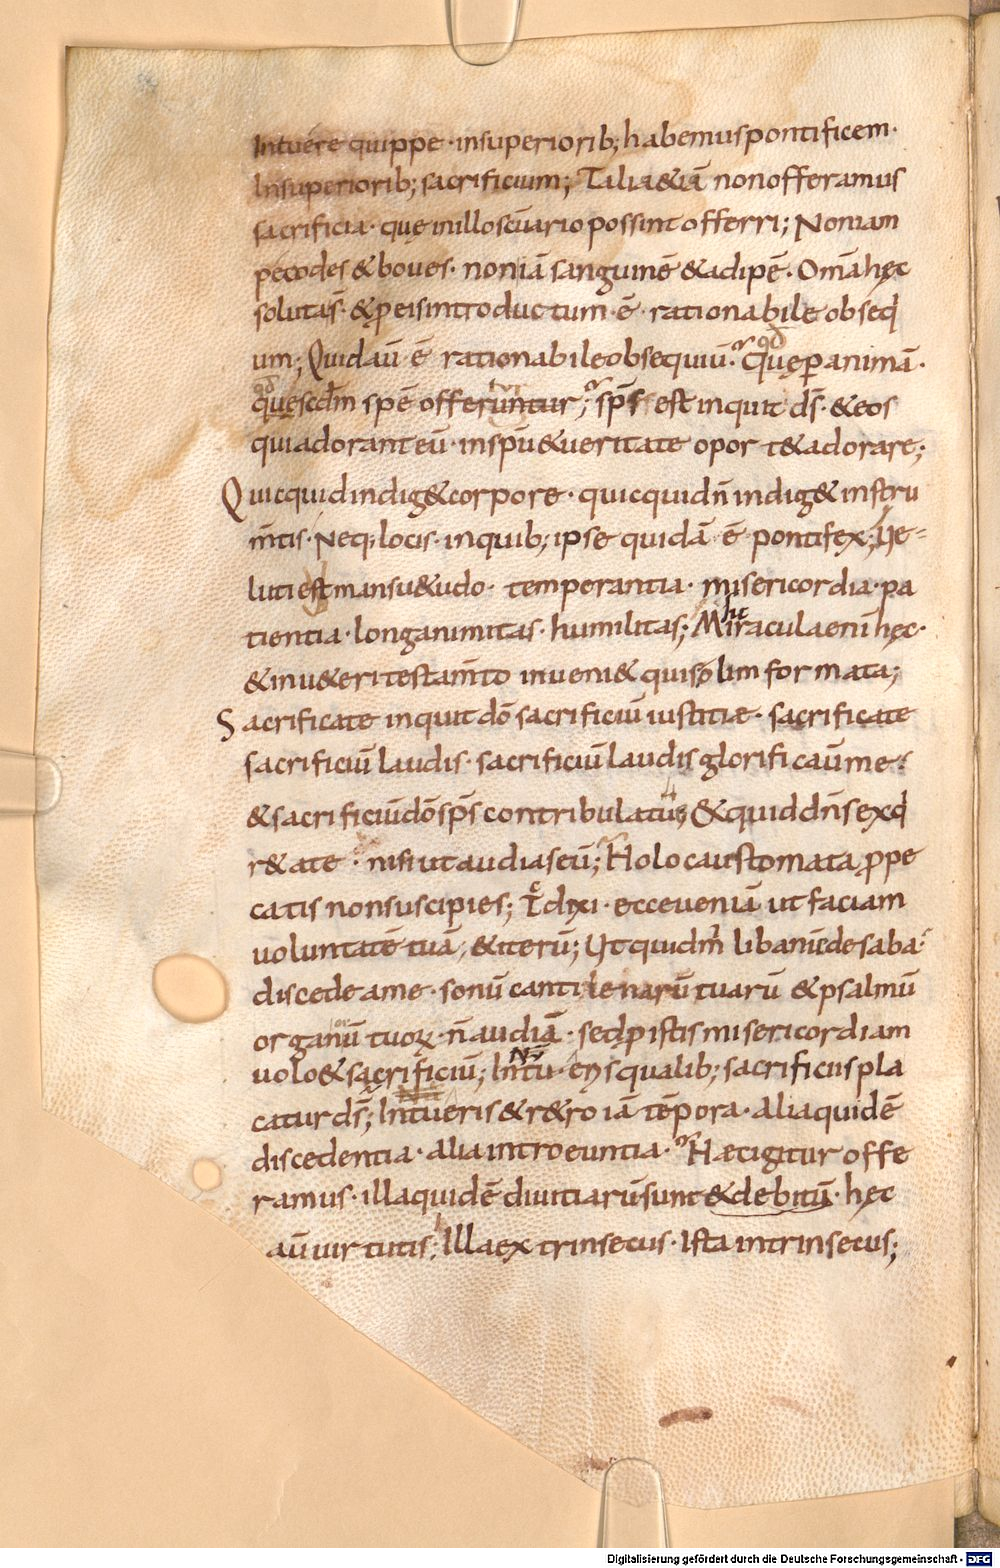 Intuere quippe · insuperiorib; habemuspontificem ·
Insuperiorib; sacrificium; Talia&iā nonofferamus
sacrificia · quę inillo scūario possint offerri; Noniam
pecodes & boues · noniā sanguinē & adipē · Omīa hęc
soluta s̄ · & p eis introductum · ē · rationabile obseq
um; Quid aū ē rationabile obsequiū · quę p animā ·
quę scdm spē offeruntur; sp̄s est inquit ds̄ · & eos
qui adorant eū · in sp̄u & ueritate opor t& adorare;
Quicquid indig& corpore · quicquid n̄ indig& instru
m̄tis · Neq; locis · inquib; ipse quidā ē pontifex; Ue-
luti est mansu&udo · temperantia · misericordia · pa
tientia · longanimitas · humilitas; Miracula eni hęc ·
& inu&eri testam̄to inueni& quis olim formata;
Sacrificate inquit dō sacrificiū iustitiæ · sacrificate
sacrificiū laudis · sacrificiū laudis glorificauī me ·
& sacrificiū dō sp̄s contribulatus; & quid dn̄s exq
r&ate · nisi ut audias eū; Holocaustomata p pe
catis non suscipies; Tc dixi · ecce ueniā ut faciam
uoluntatē tuā, & iterū; Ut quid m̄ libanū de saba ·
discede a me · sonū cantilenarū tuarū & psalmū
organū tuoꝝ · n̄ audiā · sed p istis misericordiam
uolo & sacrificiū; Intu eris qualib; sacrificiis pla
catur ds̄; Intueris & r&ro iā tēpora · alia quidē
discedentia · alia introeuntia · Hæc igitur offe
ramus · illa quidē diuitiarū sunt & debitū · hęc
aū uirtutis; Illa extrinsecus · Ista intrinsecus;
Digitalisierung gefördert durch die Deutsche Forschungsgemeinschaft - DFG